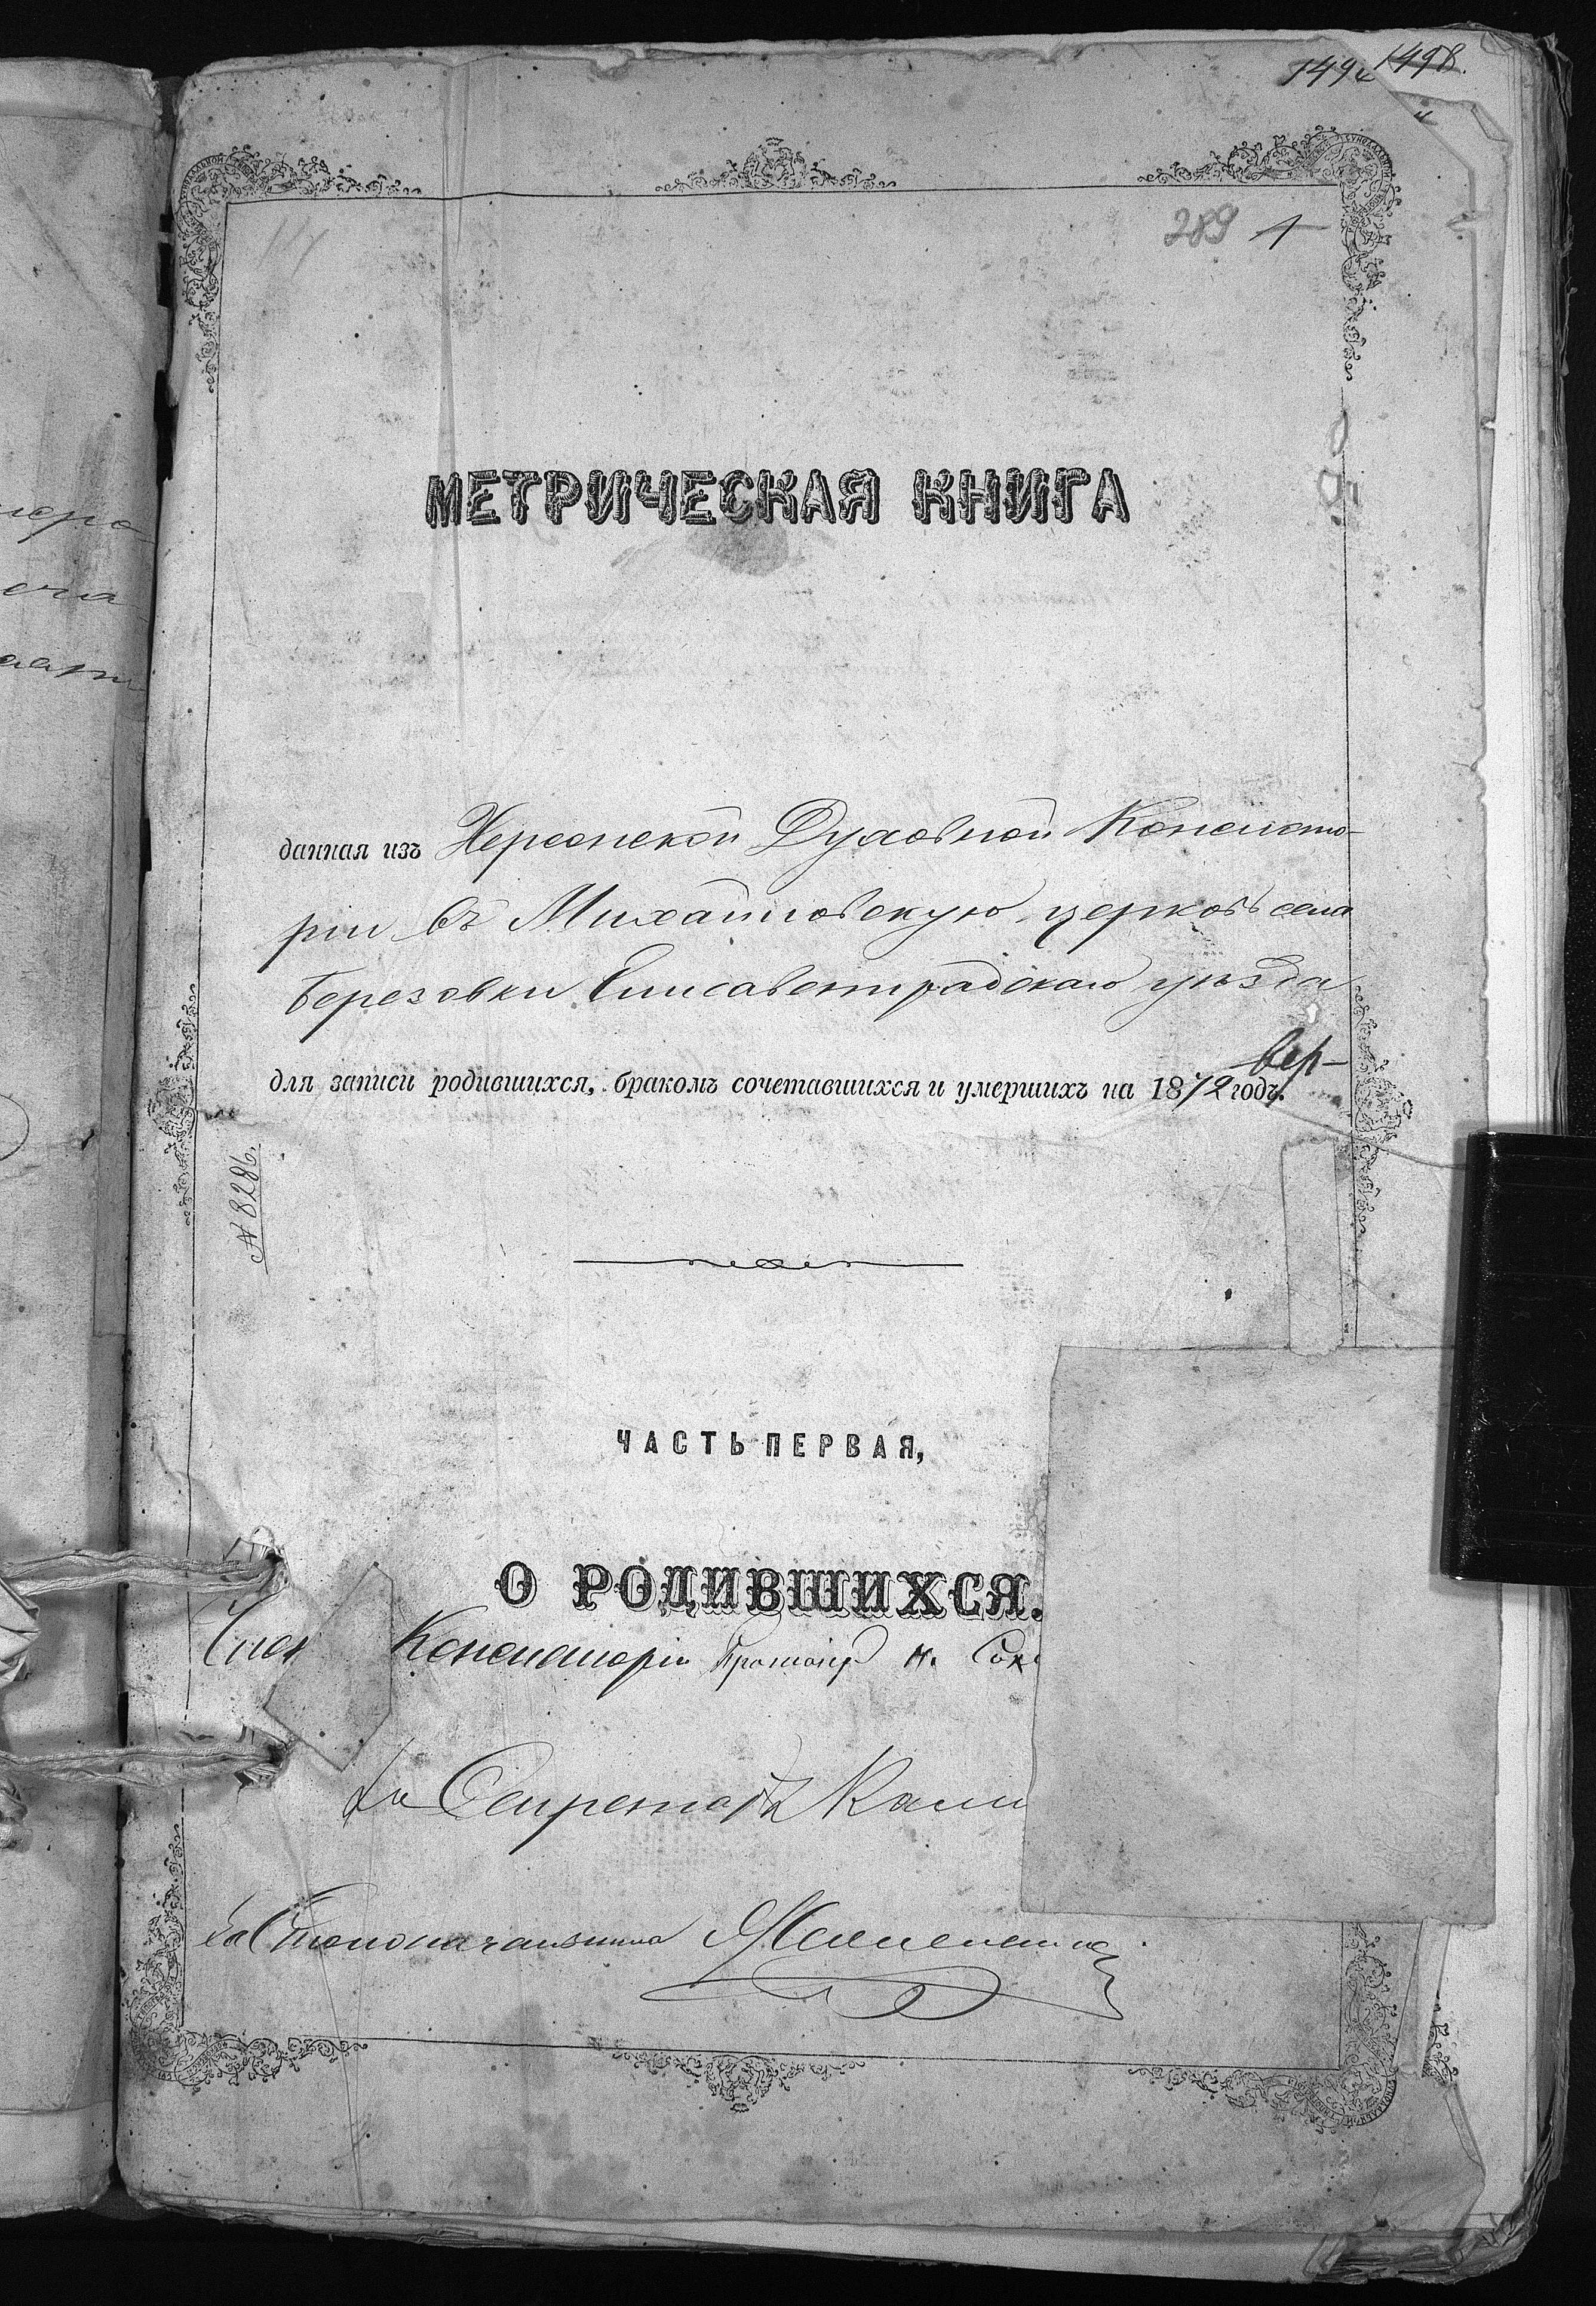 1498.
289 1
МЕТРИЧЕСКАЯ КНИГА
данная изъ Херсонской Духовной Консисто-
ріи въ Михайловскую церковь села
Березовки Елисаветградскаго уѣзда
вер-
для записи родившихся, бракомъ сочетавшихся и умершихъ на 1872 годъ.
№ 8286.
ЧАСТЬ ПЕРВАЯ,
О РОДИВШИХСЯ.
Член Консисторіи Протоіер. Н. Сок
За Секретаря
За Столоначальника